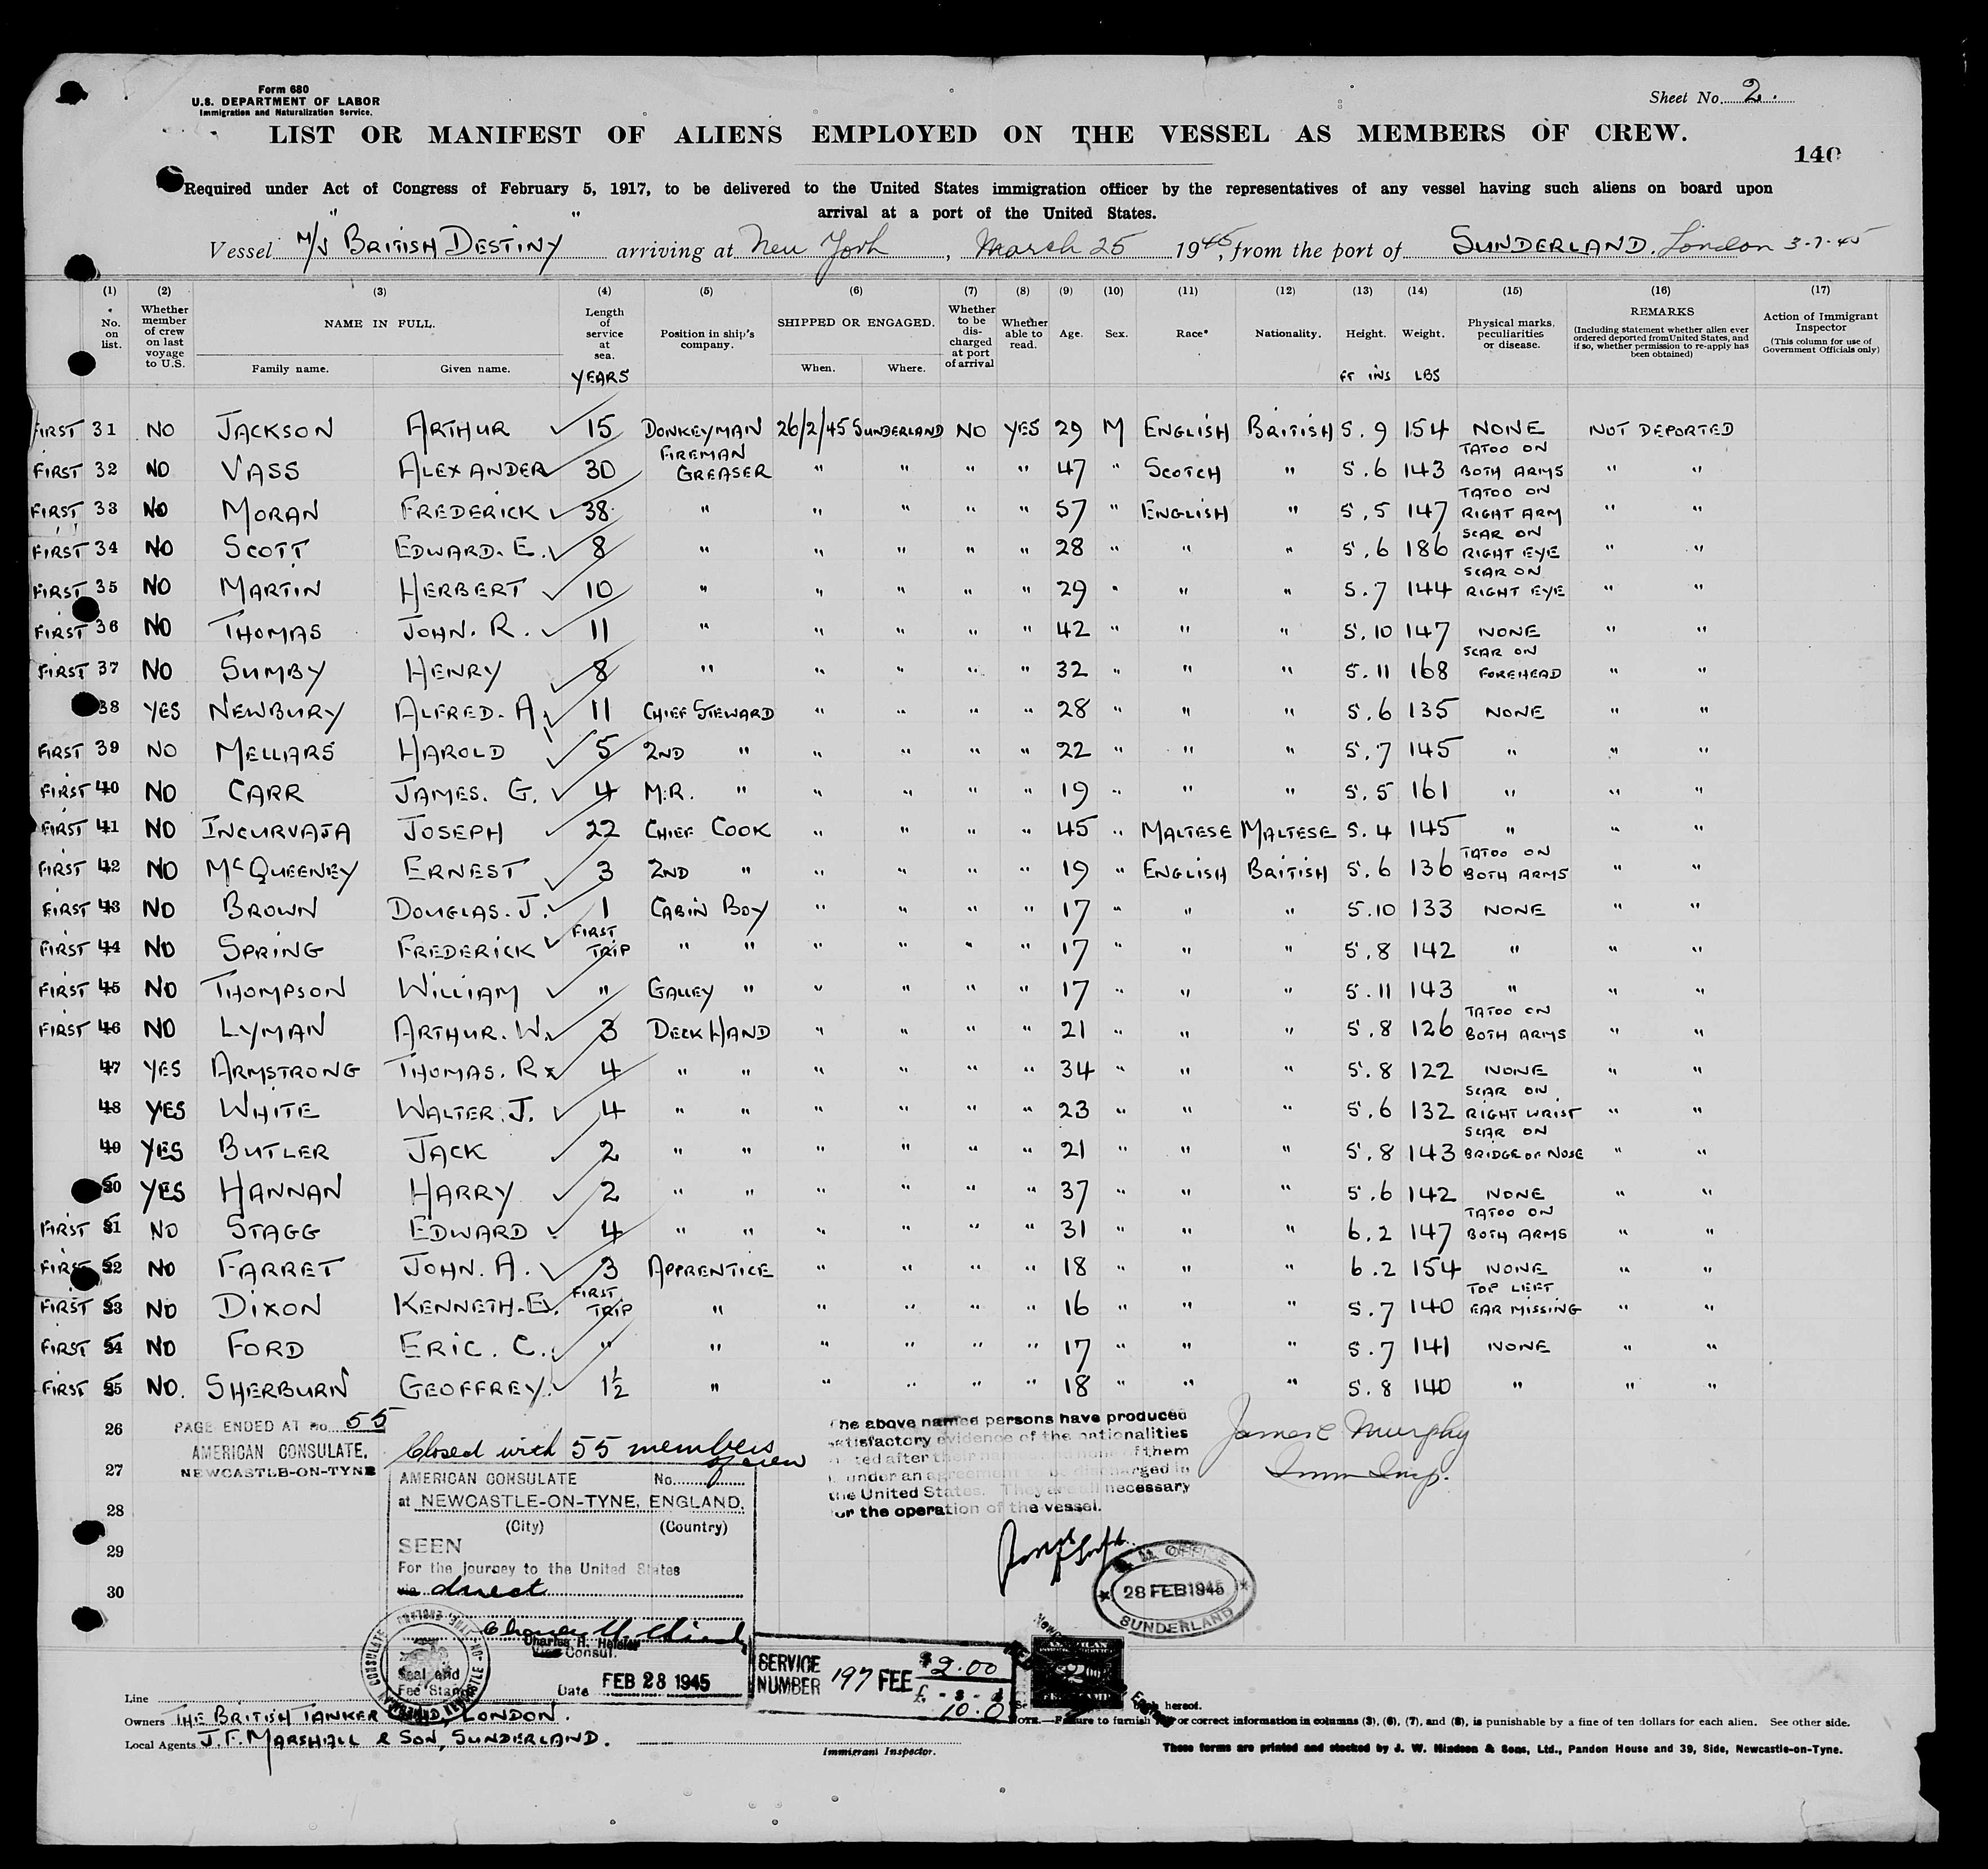 Form 680
U.S. DEPARTMENT OF LABOR
Immigration and Naturalization Service.
Sheet No. 2.
LIST OR MANIFEST OF ALIENS EMPLOYED ON THE VESSEL AS MEMBERS OF CREW.
140
Required under Act of Congress of February 5, 1917, to be delivered to the United States immigration officer by the representatives of any vessel having such aliens on board upon
arrival at a port of the United States.
Vessel M/V "BRITISH DESTINY" arriving at New York, March 25 1945, from the port of SUNDERLAND. London 3-7-45
(1) No. on list. (2) Whether member of crew on last voyage to U.S. (3) NAME IN FULL. Family name. Given name. (4) Length of service at sea. YEARS (5) Position in ship's company. (6) SHIPPED OR ENGAGED. When. Where. (7) Whether to be discharged at port of arrival (8) Whether able to read. (9) Age. (10) Sex. (11) Race* (12) Nationality. (13) Height. FT INS (14) Weight. LBS (15) Physical marks, peculiarities or disease. (16) REMARKS (Including statement whether alien ever ordered deported from United States, and if so, whether permission to re-apply has been obtained) (17) Action of Immigrant Inspector (This column for use of Government Officials only)
FIRST 31 NO JACKSON ARTHUR 15 DONKEYMAN 26/2/45 SUNDERLAND NO YES 29 M ENGLISH BRITISH 5.9 154 NONE NOT DEPORTED
FIRST 32 NO VASS ALEXANDER 30 FIREMAN GREASER " " " " 47 " SCOTCH " 5.6 143 TATOO ON BOTH ARMS " "
FIRST 33 NO MORAN FREDERICK 38 " " " " " 57 " ENGLISH " 5.5 147 TATOO ON RIGHT ARM " "
FIRST 34 NO SCOTT EDWARD. E. 8 " " " " " 28 " " " 5.6 186 SCAR ON RIGHT EYE " "
FIRST 35 NO MARTIN HERBERT 10 " " " " " 29 " " " 5.7 144 SCAR ON RIGHT EYE " "
FIRST 36 NO THOMAS JOHN. R. 11 " " " " " 42 " " " 5.10 147 NONE " "
FIRST 37 NO SUMBY HENRY 8 " " " " " 32 " " " 5.11 168 SCAR ON FOREHEAD " "
38 YES NEWBURY ALFRED. A. 11 CHIEF STEWARD " " " " 28 " " " 5.6 135 NONE " "
FIRST 39 NO MELLARS HAROLD 5 2ND " " " " " 22 " " " 5.7 145 " " "
FIRST 40 NO CARR JAMES. G. 4 M.R. " " " " " 19 " " " 5.5 161 " " "
FIRST 41 NO INCURVAJA JOSEPH 22 CHIEF COOK " " " " 45 " MALTESE MALTESE 5.4 145 " " "
FIRST 42 NO McQUEENEY ERNEST 3 2ND " " " " " 19 " ENGLISH BRITISH 5.6 136 TATOO ON BOTH ARMS " "
FIRST 43 NO BROWN DOUGLAS. J. 1 CABIN BOY " " " " 17 " " " 5.10 133 NONE " "
FIRST 44 NO SPRING FREDERICK FIRST TRIP " " " " " " 17 " " " 5.8 142 " " "
FIRST 45 NO THOMPSON WILLIAM " GALLEY " " " " " 17 " " " 5.11 143 " " "
FIRST 46 NO LYMAN ARTHUR. W. 3 DECK HAND " " " " 21 " " " 5.8 126 TATOO ON BOTH ARMS " "
47 YES ARMSTRONG THOMAS. R 4 " " " " " " 34 " " " 5.8 122 NONE " "
48 YES WHITE WALTER. J. 4 " " " " " " 23 " " " 5.6 132 SCAR ON RIGHT WRIST " "
49 YES BUTLER JACK 2 " " " " " " 21 " " " 5.8 143 SCAR ON BRIDGE OF NOSE " "
50 YES HANNAN HARRY 2 " " " " " " 37 " " " 5.6 142 NONE " "
FIRST 51 NO STAGG EDWARD 4 " " " " " " 31 " " " 6.2 147 TATOO ON BOTH ARMS " "
FIRST 52 NO FARRET JOHN. A. 3 APPRENTICE " " " " 18 " " " 6.2 154 NONE " "
FIRST 53 NO DIXON KENNETH. E. FIRST TRIP " " " " " 16 " " " 5.7 140 TOP LEFT EAR MISSING " "
FIRST 54 NO FORD ERIC. C. " " " " " " 17 " " " 5.7 141 NONE " "
FIRST 55 NO. SHERBURN GEOFFREY. 1½ " " " " " 18 " " " 5.8 140 " " "
26 PAGE ENDED AT no. 55
AMERICAN CONSULATE,
27 NEWCASTLE-ON-TYNE
28
29
30
Closed with 55 members of crew
AMERICAN CONSULATE No.
at NEWCASTLE-ON-TYNE, ENGLAND.
(City) (Country)
SEEN
For the journey to the United States
via direct
Charles H.
Vice Consul.
Date FEB 28 1945
Seal and
Fee Stamp
The above named persons have produced
satisfactory evidence of the nationalities
stated after their names and none of them
is under an agreement to be discharged in
the United States. They are all necessary
for the operation of the vessel.
James C Murphy
Imm Insp.
OFFICE
28 FEB 1945
SUNDERLAND
SERVICE NUMBER 197 FEE $2.00
Line
Owners THE BRITISH TANKER LONDON.
Local Agents J.F. MARSHALL & SON, SUNDERLAND.
Immigrant Inspector.
hereof.
NOTE.—Failure to furnish or correct information in columns (3), (6), (7), and (8), is punishable by a fine of ten dollars for each alien. See other side.
These forms are printed and stocked by J. W. Hindson & Sons, Ltd., Pandon House and 39, Side, Newcastle-on-Tyne.